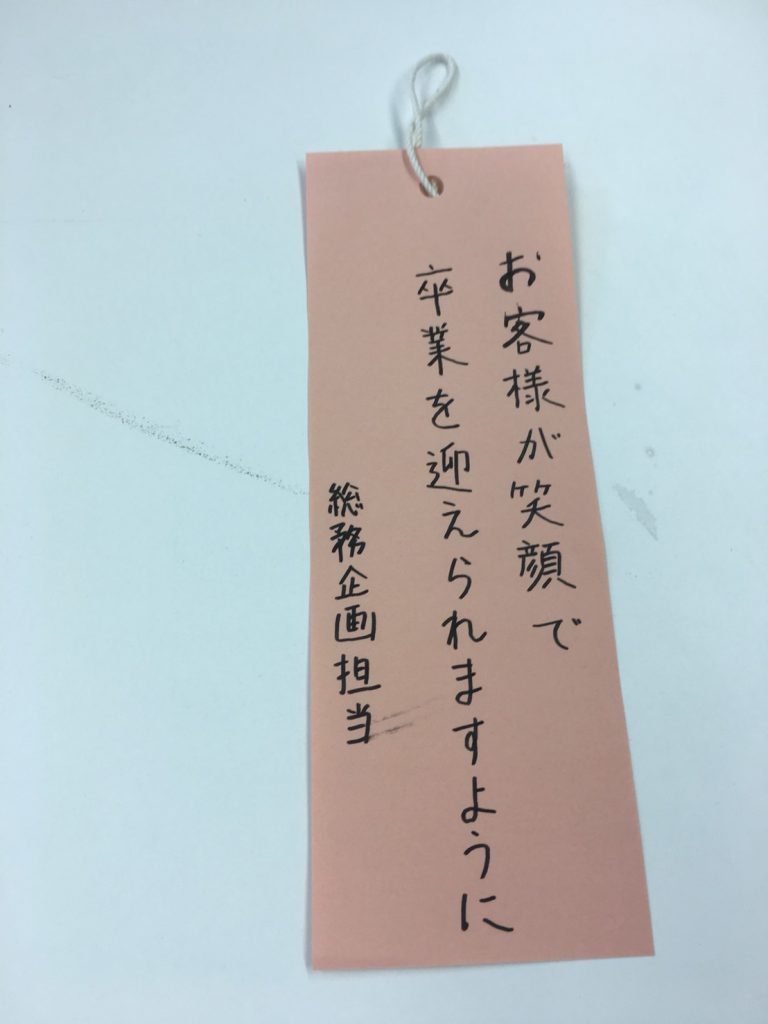 お客様が笑顔で
卒業を迎えられますように
総務企画担当